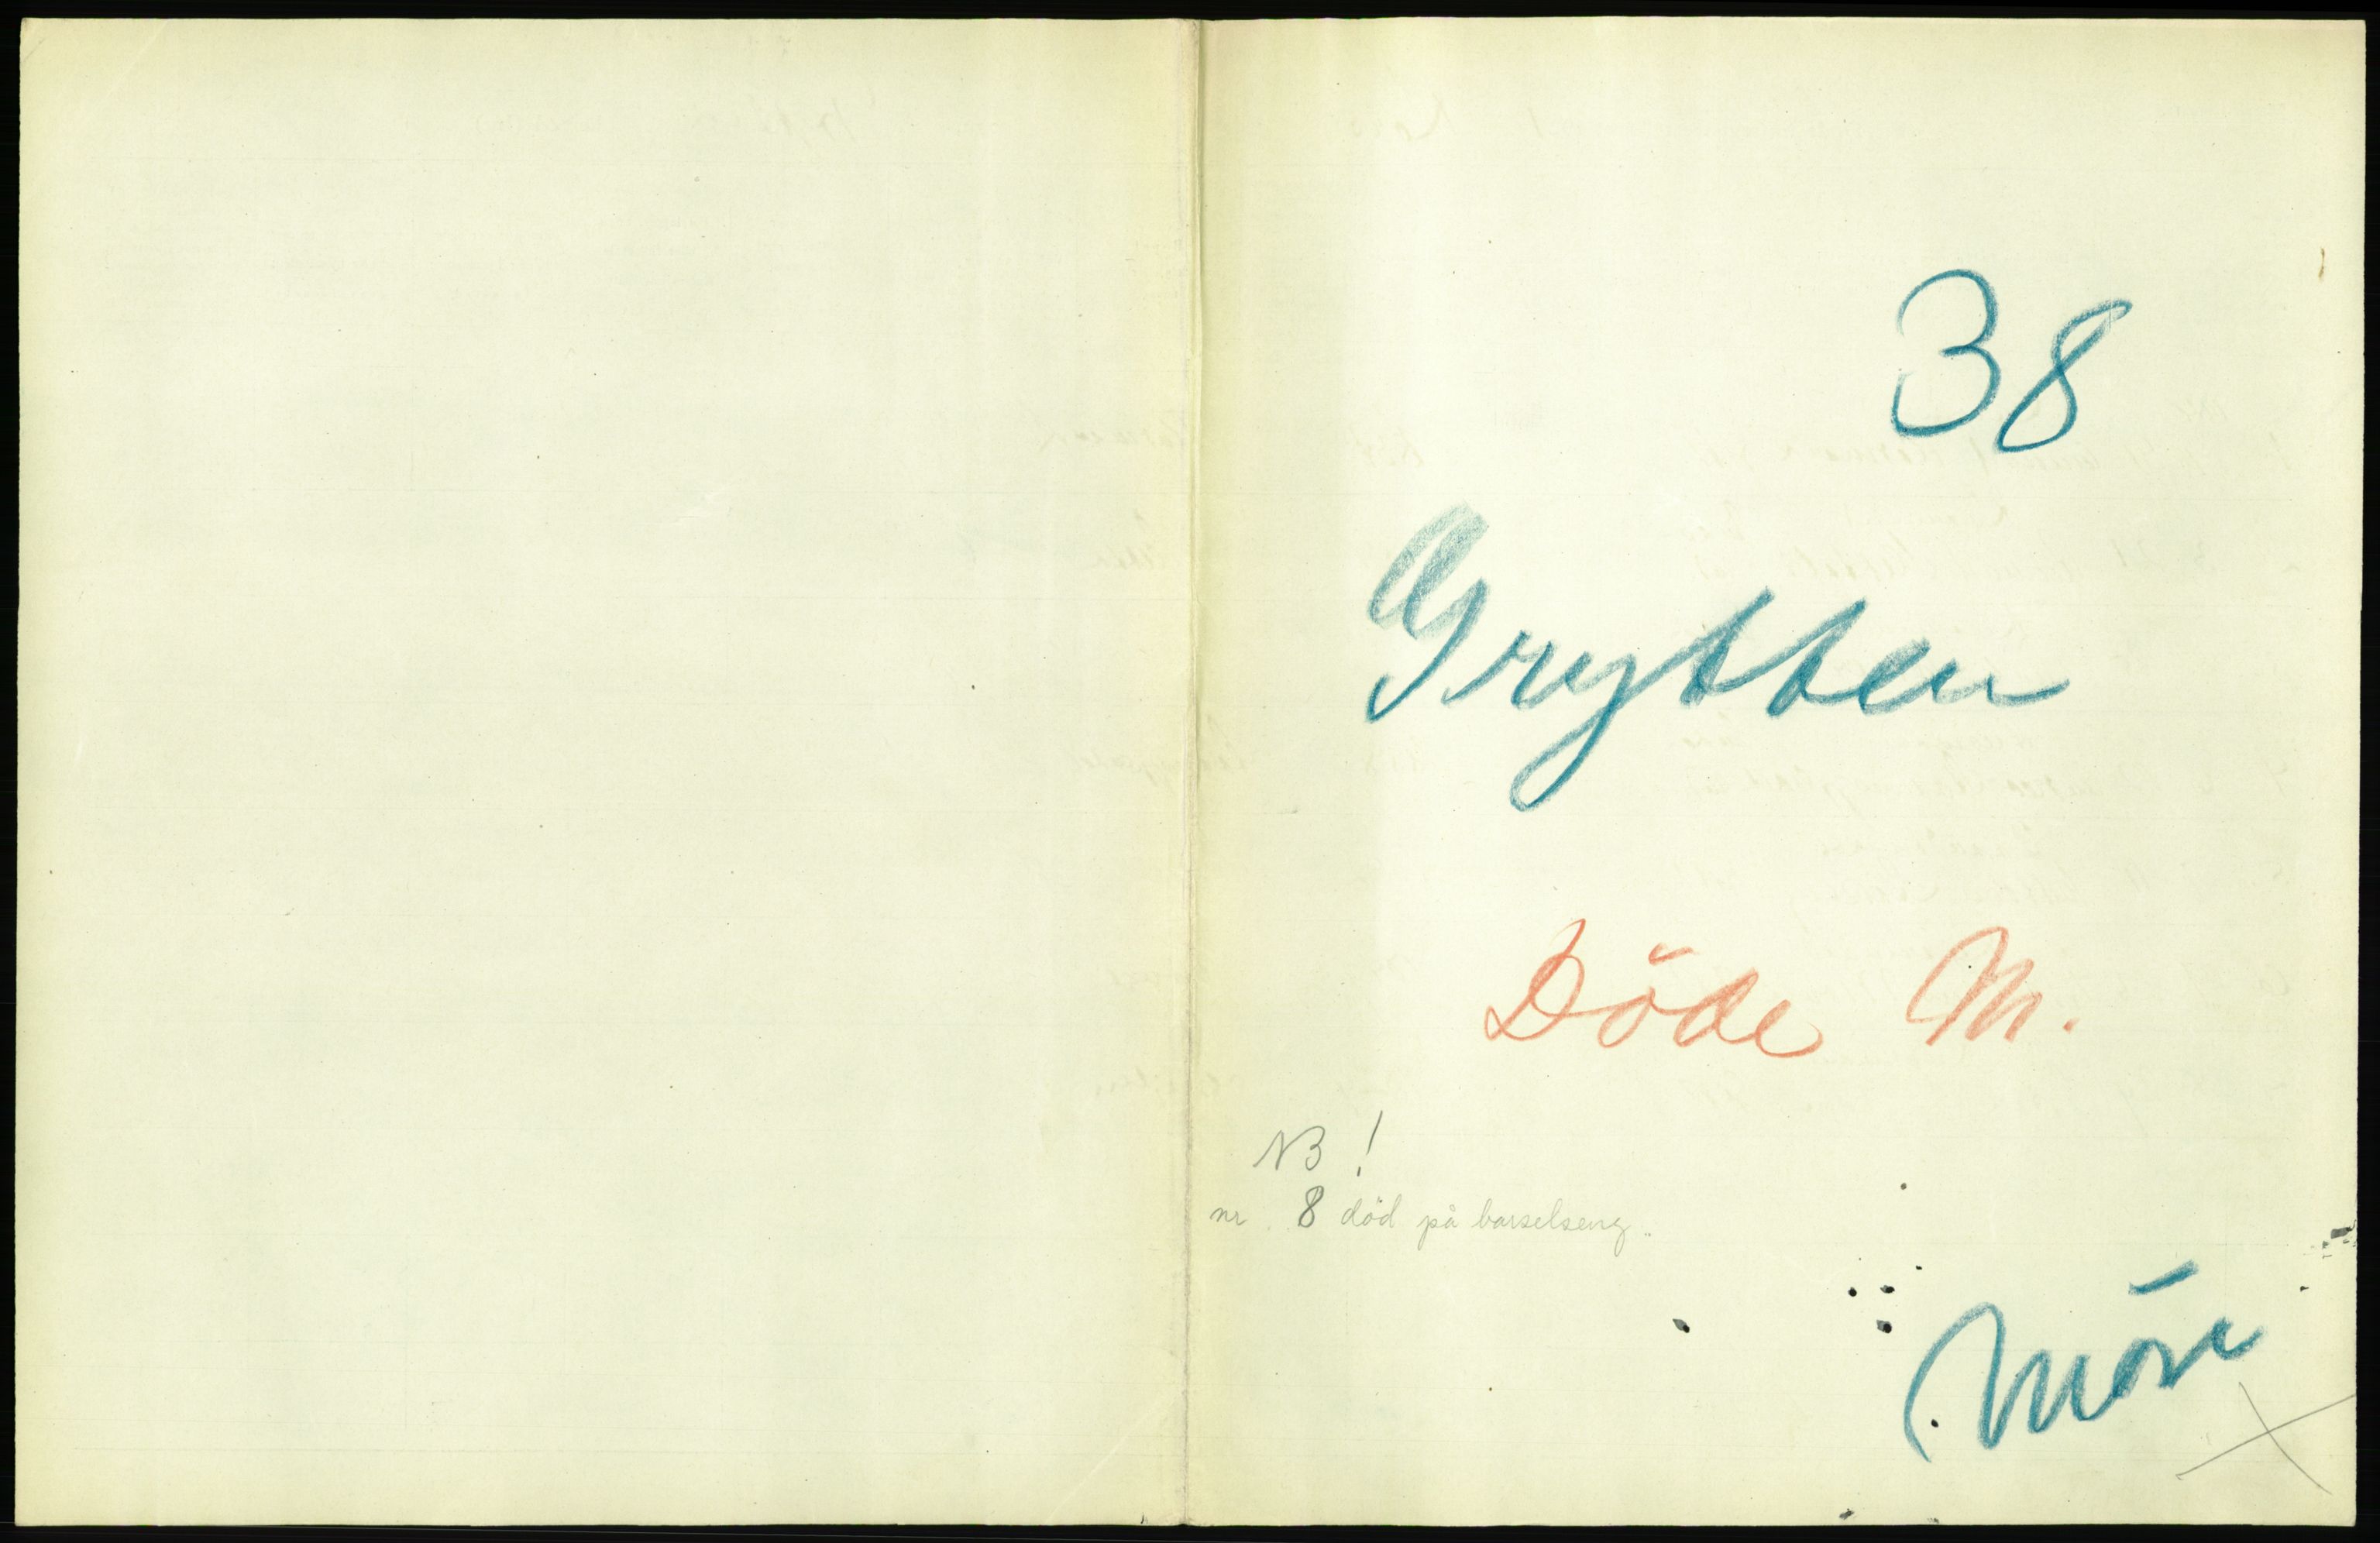 38
Grytten
Döde M.
NB!
nr. 8 död på barselseng.
Möre